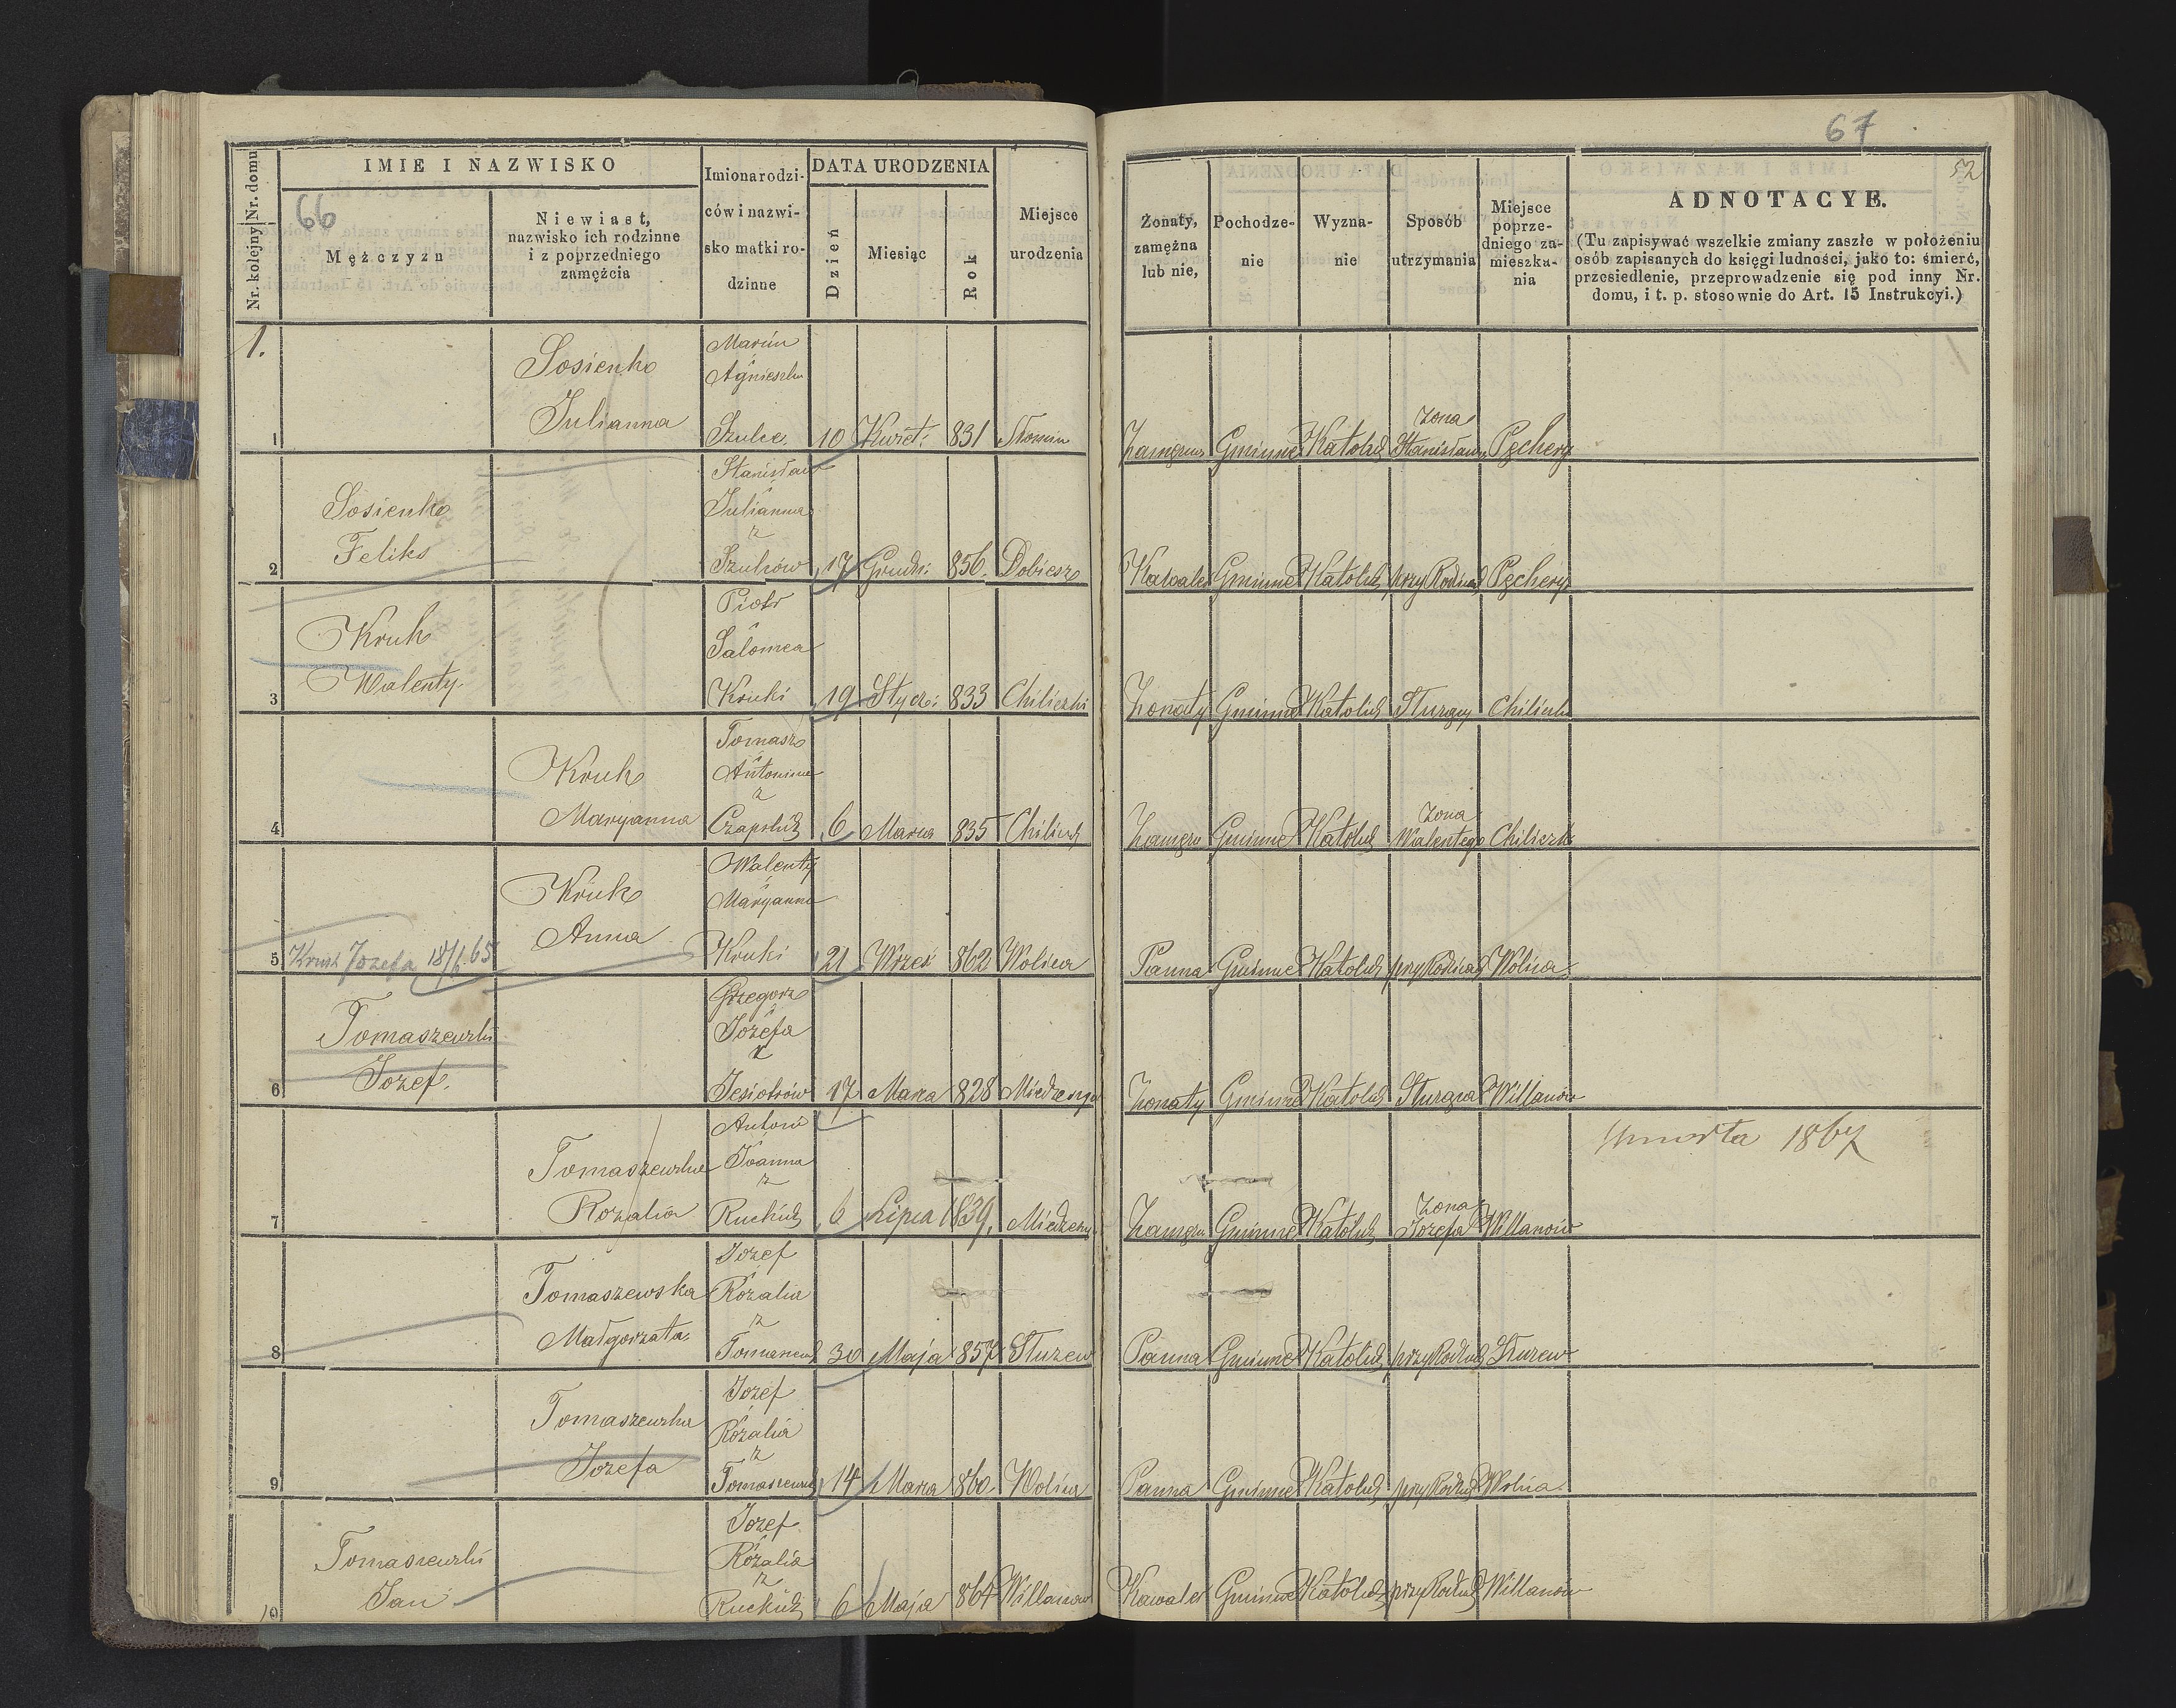 66
67
52
Nr. kolejny Nr. domu
IMIE I NAZWISKO
Mężczyzn
Niewiast,
nazwisko ich rodzinne
i z poprzedniego
zamężcia
Imiona rodzi-
ców i nazwi-
sko matki ro-
dzinne
DATA URODZENIA
Dzień
Miesiąc
Rok
Miejsce
urodzenia
Żonaty,
zamężna
lub nie,
Pochodze-
nie
Wyzna-
nie
Sposób
utrzymania
Miejsce
poprze-
dniego za-
mieszka-
nia
ADNOTACYE.
(Tu zapisywać wszelkie zmiany zaszłe w położeniu
osób zapisanych do księgi ludności, jako to: śmierć,
przesiedlenie, przeprowadzenie się pod inny Nr.
domu, i t. p. stosownie do Art. 15 Instrukcyi.)
1.
1
Sosienko
Julianna
Marcin
Agnieszka
Szulce.
10 Kwiet: 831 Słomin
Zamężna Gminne Katolick Żona
Stanisława Pęchery
2
Sosienko
Feliks
Stanisław
i
Julianna
z
Szulców
17 Grudn: 856. Dobiesz
Kawaler Gminne Katolick przy Rodzic Pęchery
3
Kruk
Walenty.
Piotr
i
Salomea
Kruki
19 Stycz: 833 Chiliczki
Żonaty Gminne Katolick Sługą
4
Kruk
Maryanna
Tomasz
i
Antonina
z
6 Marca 835
Zamężn Gminne Katolick Żona
Walentego Chiliczk
5
Kruk Józefa 18/6.65
Kruk
Anna
Walenty
i
Maryanna
Kruki
21 Wrześ 862 Wolica
Panna Gminne Katolick przy Rodzicac Wolica
6
Tomaszewski
Jozef.
Grzegorz
i
Jozefa
z
Jesiotrów
17 Marca 828
Żonaty Gminne Katolick Willanów
7
Tomaszewska
Rozalia
Antoni
i
Joanna
z
6 Lipca 1839.
Zamężn Gminne Katolick Żona
Jozefa Willanów
Umarła 1867
8
Tomaszewska
Małgorzata
Jozef
i
Rozalia
z
30 Maja 857 Służew
Panna Gminne Katolick przy Rodzic Służew
9
Tomaszewska
Jozefa
Jozef
i
Rozalia
z
14 Marca 860 Wolica
Panna Gminne Katolick przy Rodzic Wolica
10
Tomaszewski
Jan
Jozef
i
Rozalia
z
6 Maja 864 Willanow
Kawaler Gminne Katolick przy Rodzic Willanów